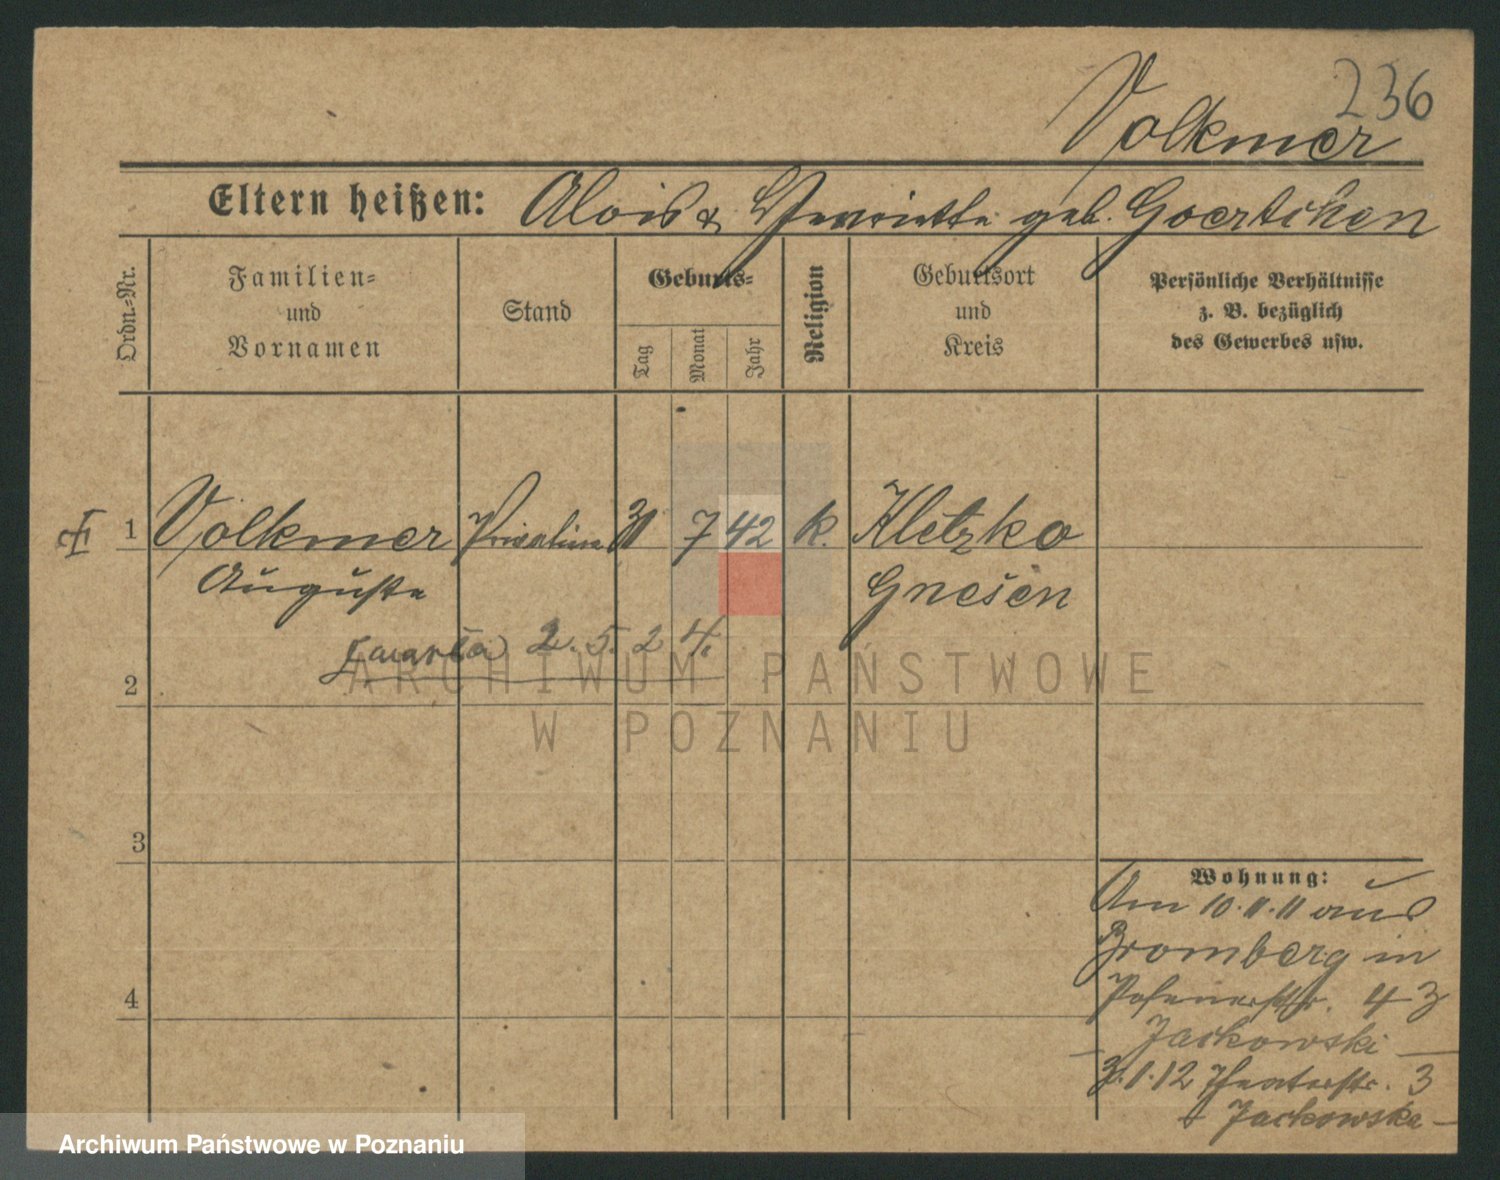 236
Volkmer
Eltern heißen: Alois & Henriette geb. Goertchen
Ordn.-Nr.
Familien- und Vornamen
Stand
Geburts-
Tag
Monat
Jahr
Religion
Geburtsort und Kreis
Persönliche Verhältnisse z. B. bezüglich des Gewerbes usw.
1 Volkmer Privatiere 31 7 42 k. Kletzko
Auguste Gnesen
zmarła 2.5.24.
2
ARCHIWUM PAŃSTWOWE
W POZNANIU
3
Wohnung:
Am 10.11.11 aus
Bromberg in
4
Posenerstr. 43
Jackowski
3.1.12 Theaterstr. 3
Jackowska
Archiwum Państwowe w Poznaniu